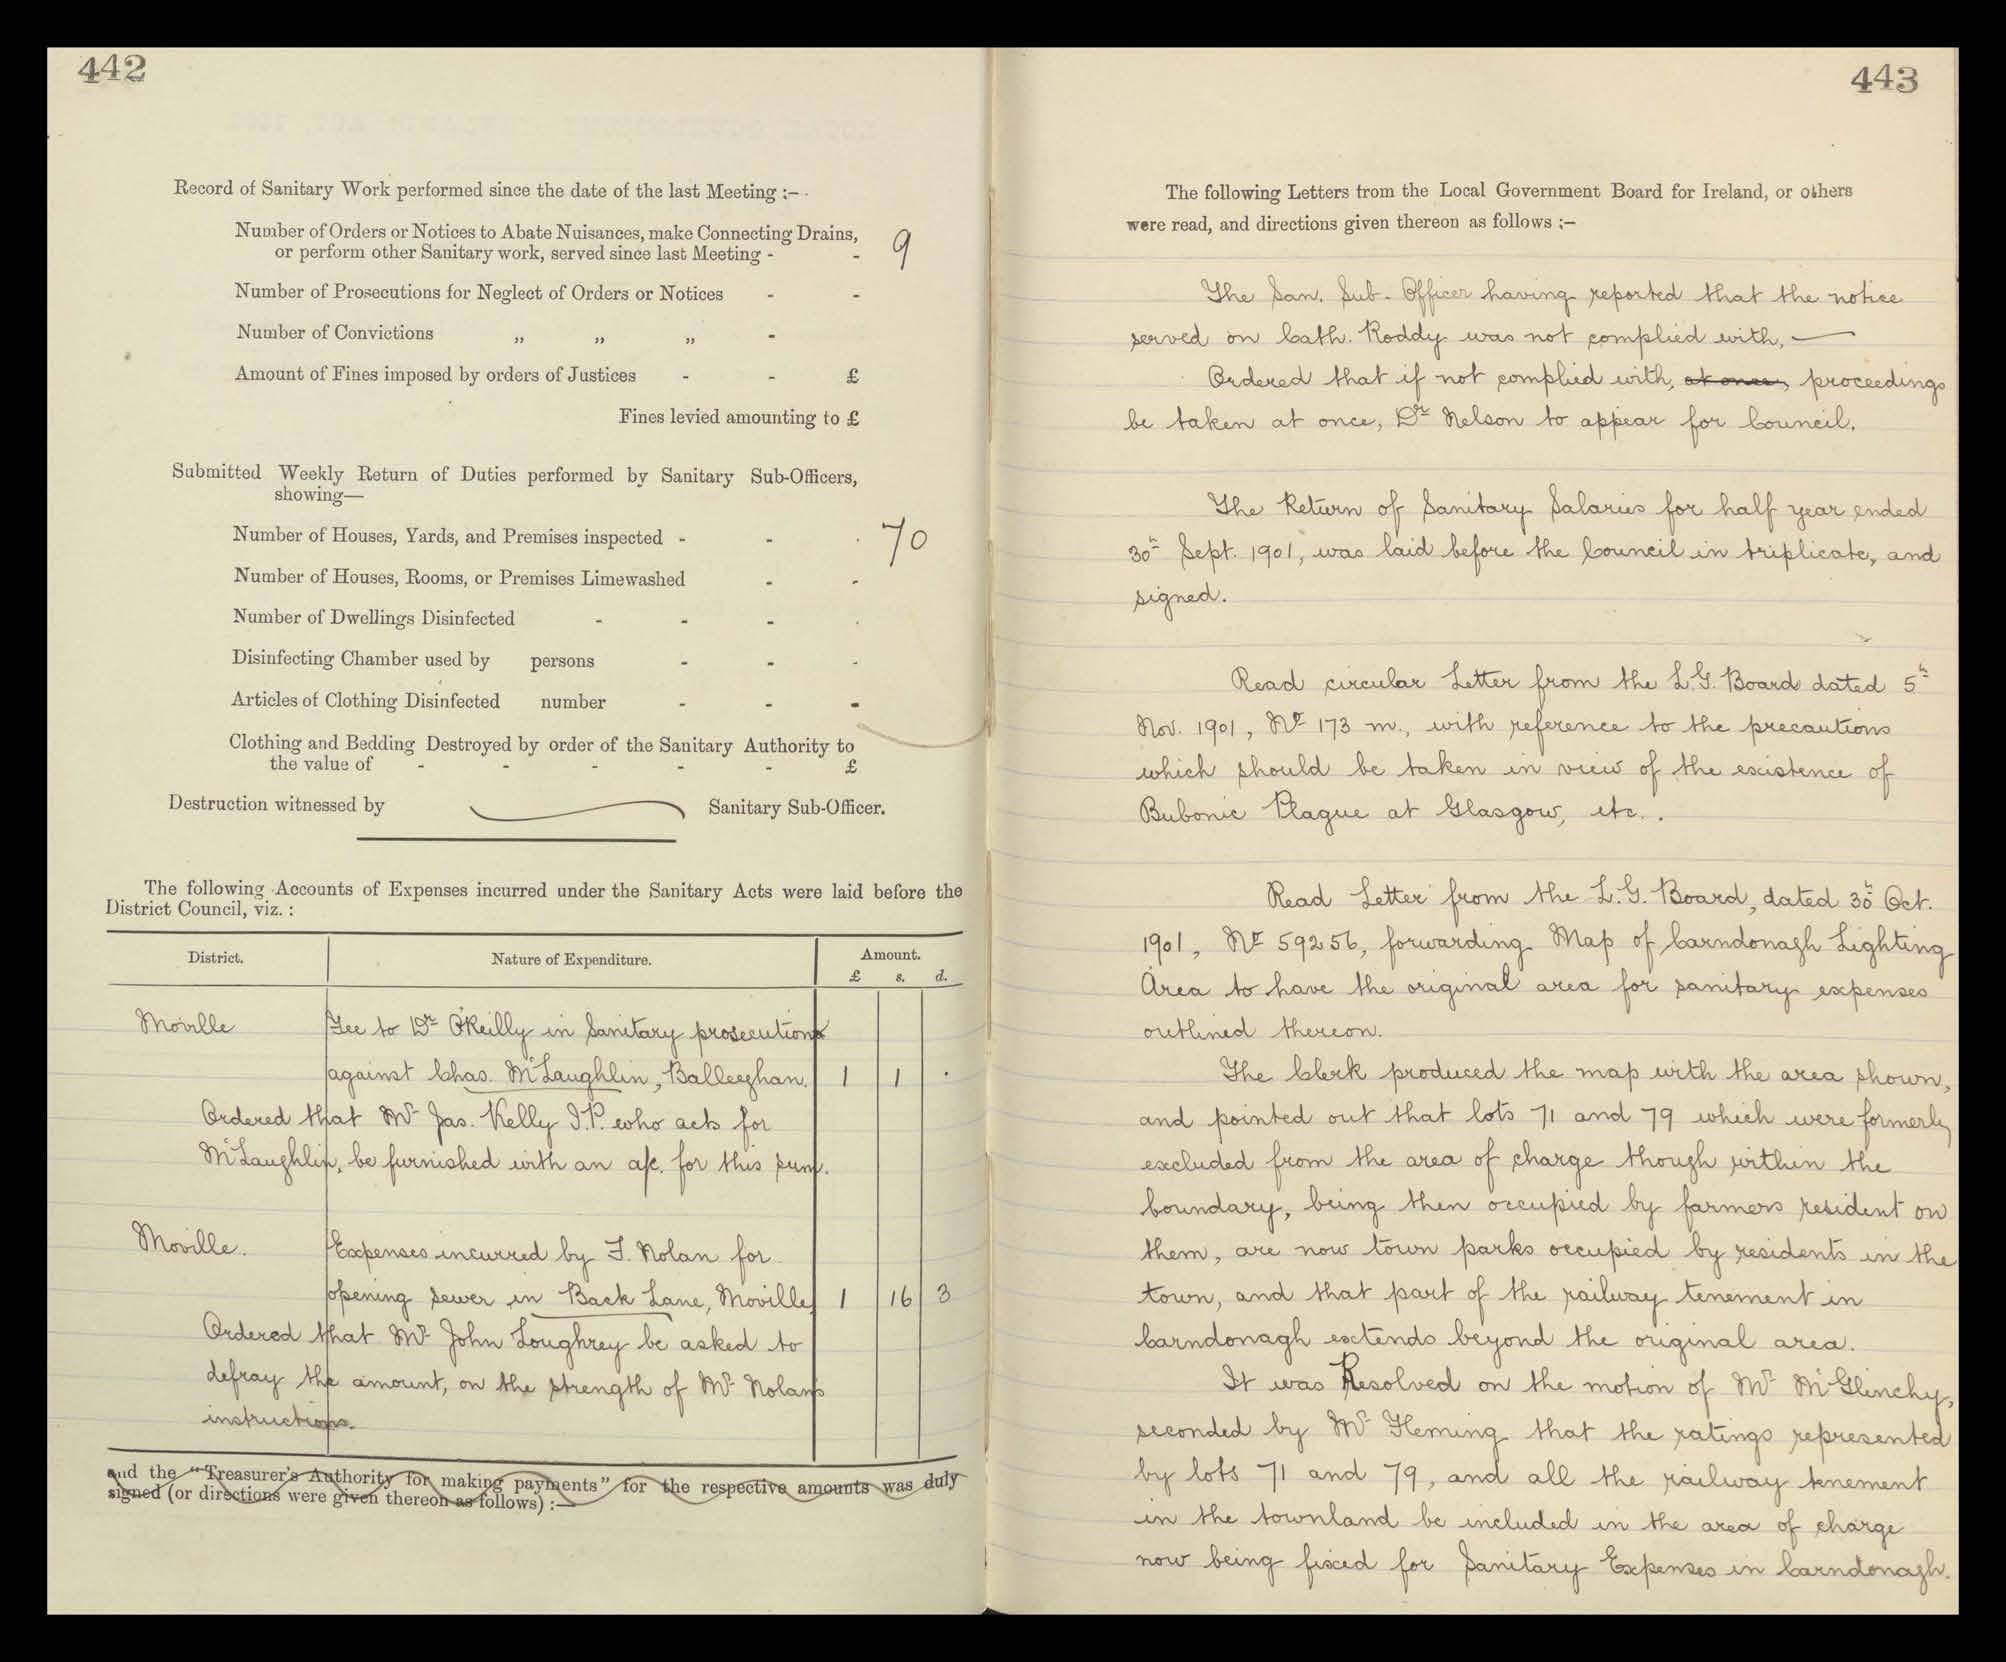 442
Record of Sanitary Work performed since the date of the last Meeting :–
Number of Orders or Notices to Abate Nuisances, make Connecting Drains,
or perform other Sanitary work, served since last Meeting - - 9
Number of Prosecutions for Neglect of Orders or Notices - -
Number of Convictions „ „ „ -
Amount of Fines imposed by orders of Justices - - £
Fines levied amounting to £
Submitted Weekly Return of Duties performed by Sanitary Sub-Officers,
showing—
Number of Houses, Yards, and Premises inspected - - 70
Number of Houses, Rooms, or Premises Limewashed - -
Number of Dwellings Disinfected - - -
Disinfecting Chamber used by persons - - -
Articles of Clothing Disinfected number - - -
Clothing and Bedding Destroyed by order of the Sanitary Authority to
the value of - - - - - £
Destruction witnessed by Sanitary Sub-Officer.
The following Accounts of Expenses incurred under the Sanitary Acts were laid before the
District Council, viz. :
District. Nature of Expenditure. Amount.
£ s. d.
Moville Fee to Dr O'Reilly in Sanitary prosecution
against Chas. McLaughlin, Balleeghan. 1 1 .
Ordered that Mr Jas. Kelly J.P. who acts for
McLaughlin, be furnished with an a/c. for this sum.
Moville. Expenses incurred by F. Nolan for
opening sewer in Back Lane, Moville 1 16 3
Ordered that Mr John Loughrey be asked to
defray the amount, on the strength of Mr Nolan's
instructions.
and the "Treasurer's Authority for making payments" for the respective amounts was duly
signed (or directions were given thereon as follows) :—
443
The following Letters from the Local Government Board for Ireland, or others
were read, and directions given thereon as follows :–
The San. Sub-Officer having reported that the notice
served on Cath. Roddy was not complied with, —
Ordered that if not complied with, at once, proceedings
be taken at once, Dr Nelson to appear for Council.
The Return of Sanitary Salaries for half year ended
30th Sept. 1901, was laid before the Council in triplicate, and
signed.
Read circular Letter from the L.G. Board dated 5th
Nov. 1901, No 173 m., with reference to the precautions
which should be taken in view of the existence of
Bubonic Plague at Glasgow, etc..
Read Letter from the L.G. Board, dated 30th Oct.
1901, No 59256, forwarding Map of Carndonagh Lighting
Area to have the original area for sanitary expenses
outlined thereon.
The Clerk produced the map with the area shown,
and pointed out that lots 71 and 79 which were formerly
excluded from the area of charge though within the
boundary, being then occupied by farmers resident on
them, are now town parks occupied by residents in the
town, and that part of the railway tenement in
Carndonagh extends beyond the original area.
It was Resolved on the motion of Mr McGlinchy,
seconded by Mr Fleming that the ratings represented
by lots 71 and 79, and all the railway tenement
in the townland be included in the area of charge
now being fixed for Sanitary Expenses in Carndonagh.